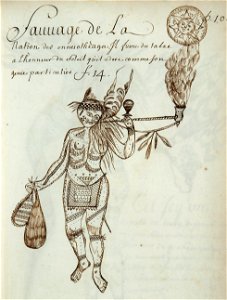 Sauvage de La
Nation des onneiothehaga. Il fume du tabac
a Lhonneur du Soleil quil adore comme son
genie particulier f. 14.